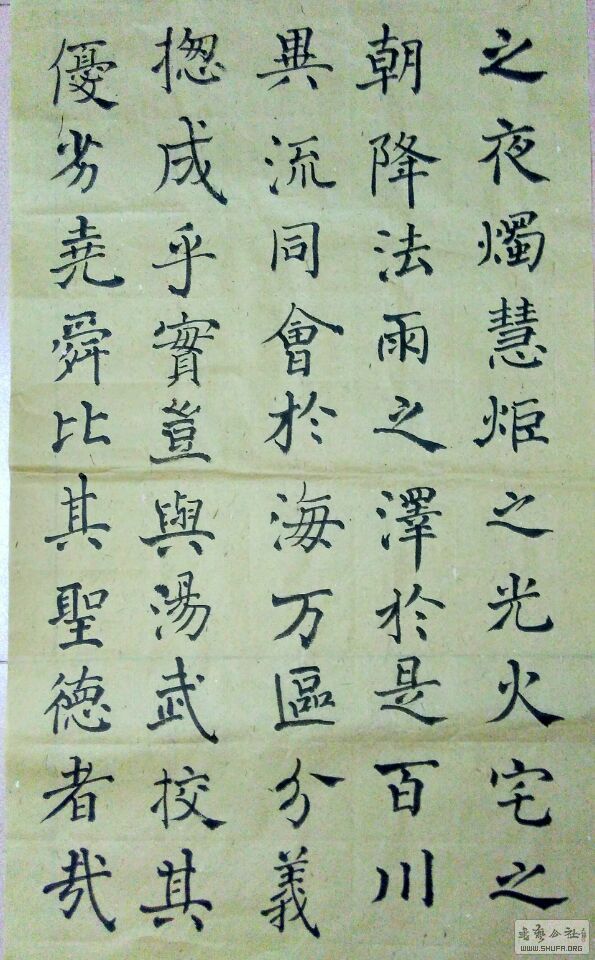 之夜燭慧炬之光火宅之
朝降法雨之澤於是百川
異流同會於海万區分義
揔成乎實豈與湯武挍其
優劣堯舜比其聖德者哉
WWW.SHUFA.ORG